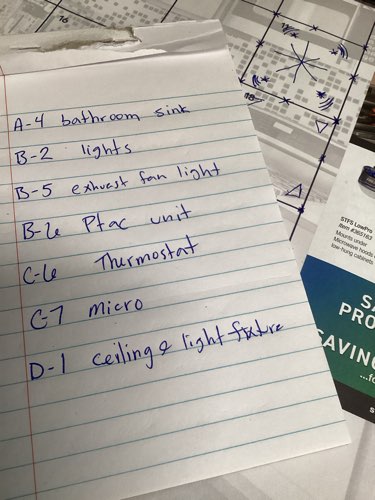 A-4 bathroom sink
B-2 lights
B-5 exhuast fan light
B-6 Ptac unit
C-6 Thermostat
C-7 micro
D-1 ceiling & light fixture
STFS LowPro
Item #365163
Mounts under
Microwave hoods
low-hung cabinets
SA
PRO
SAVIN
...fo